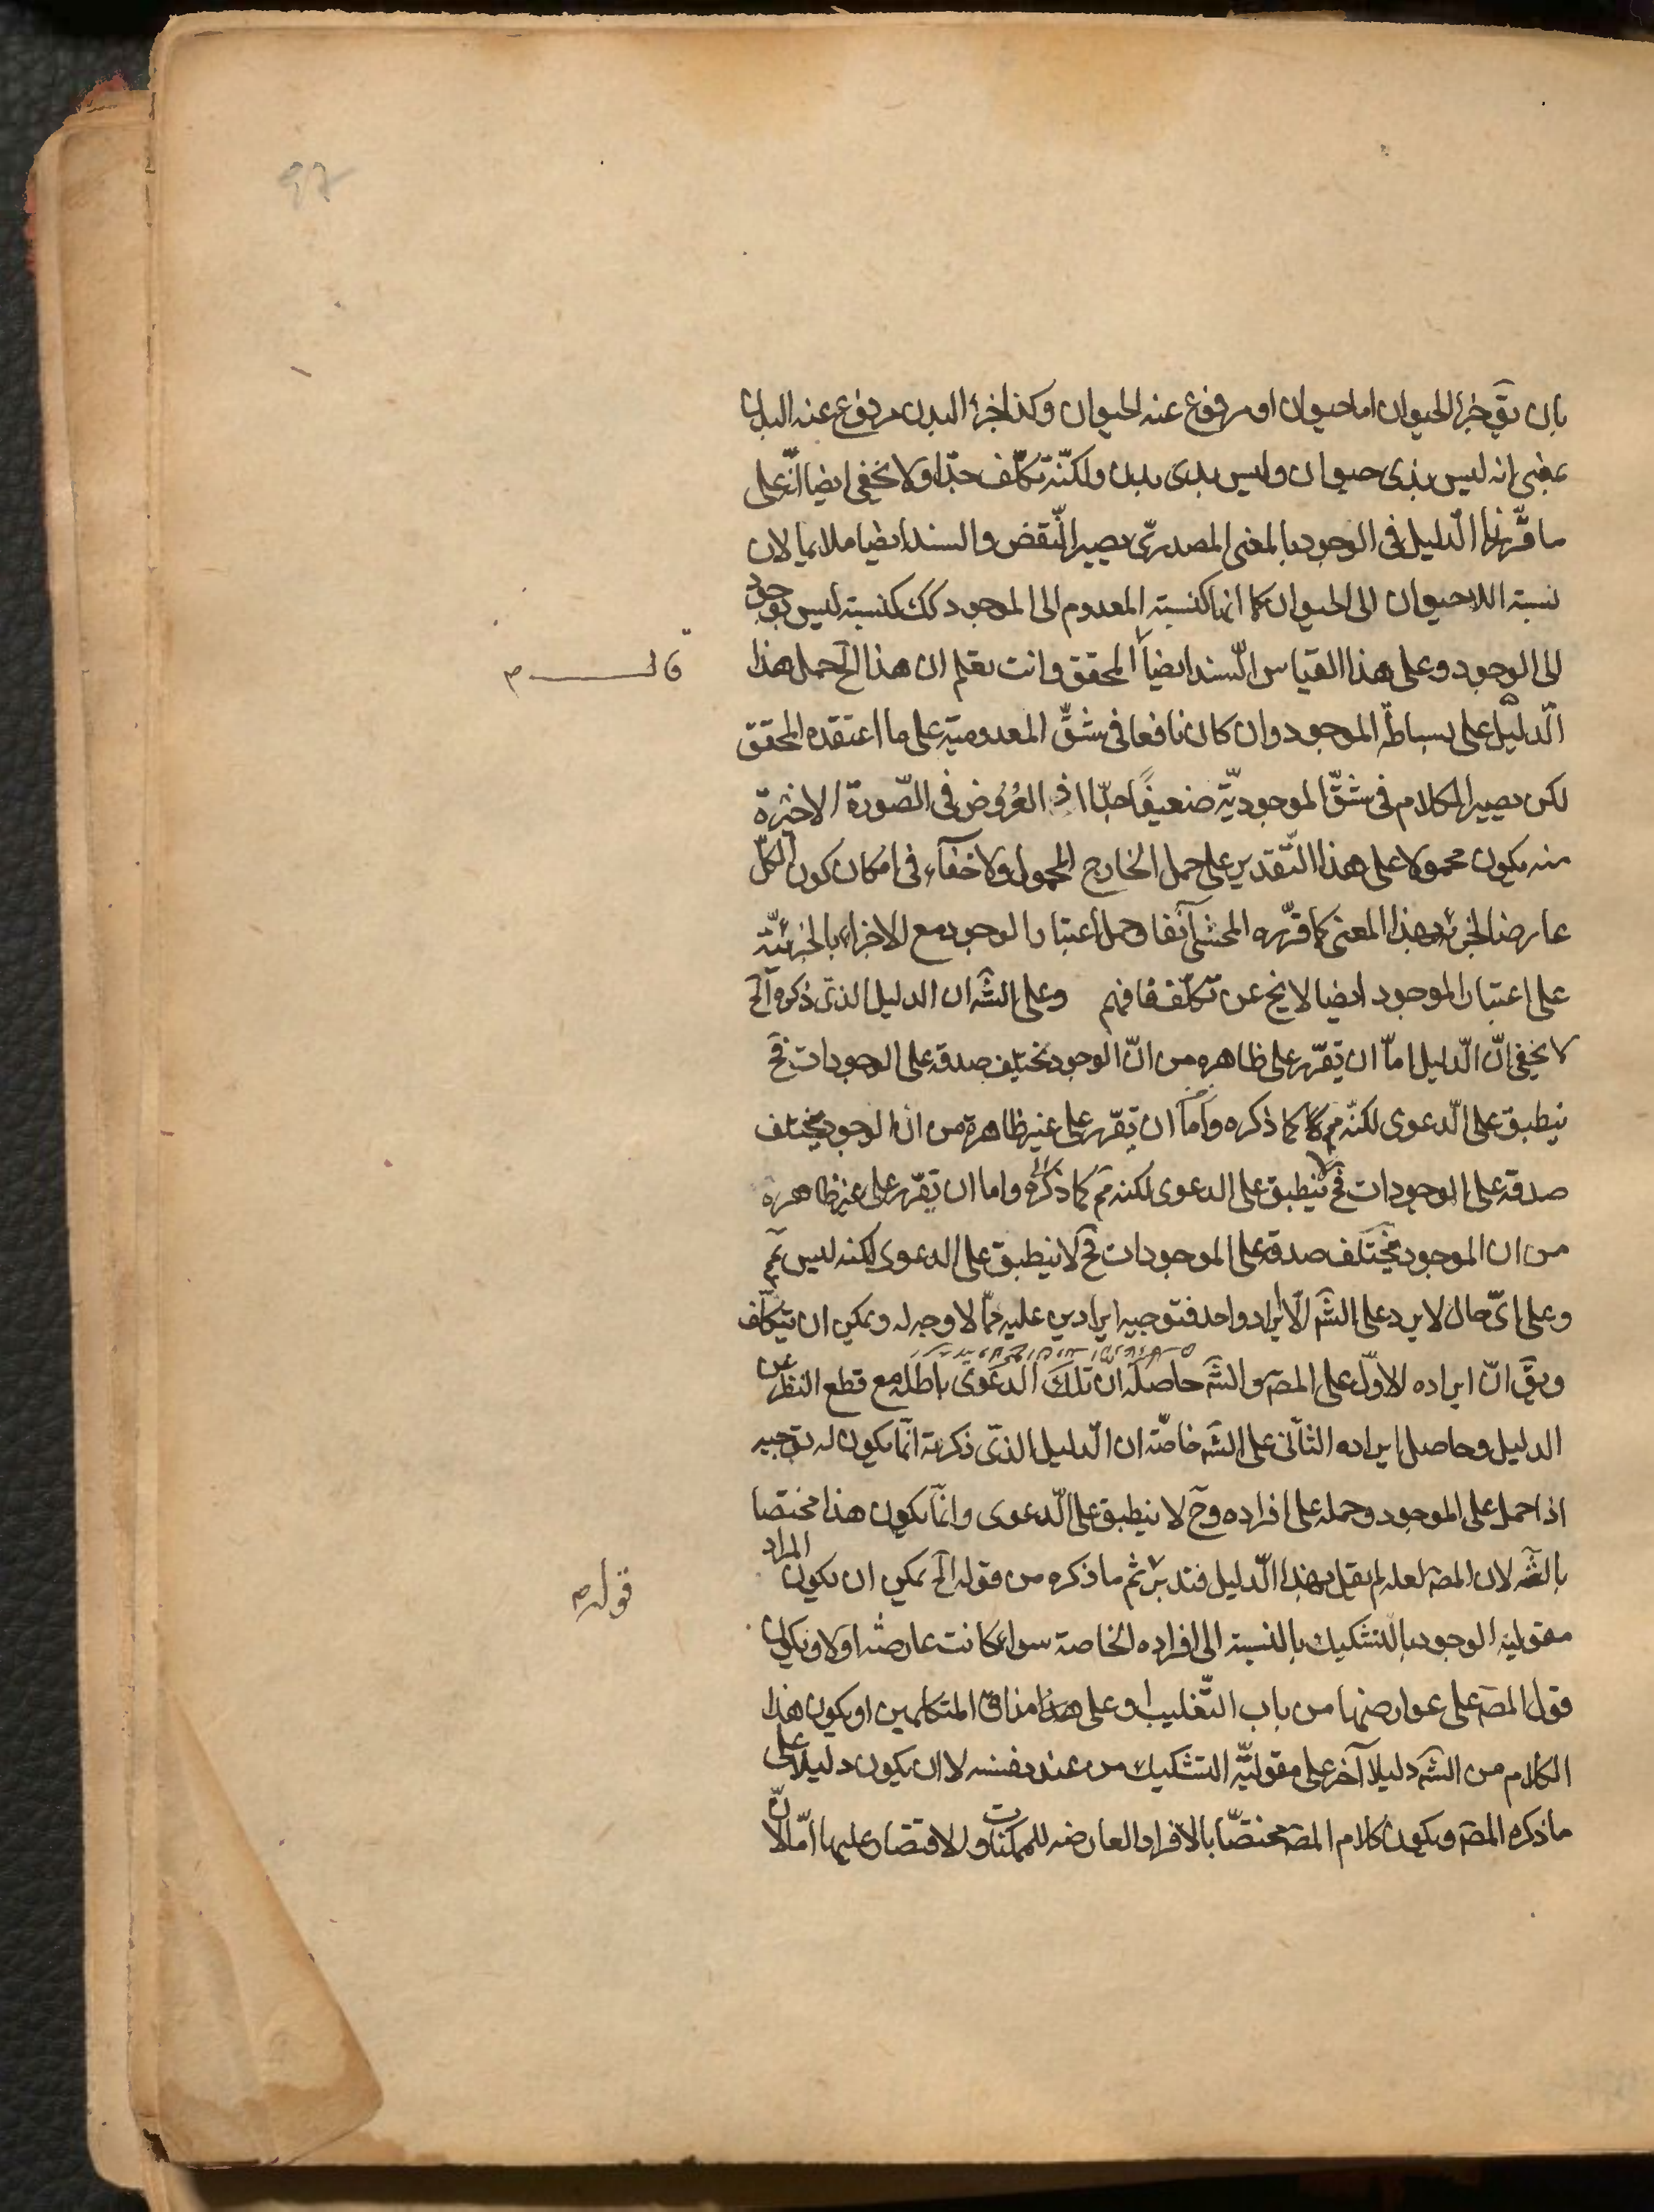 بان يقَ جزء الحيوان اما حيوان او مرفوع عنه الحيوان وكذا جزء البدن مرفوع عنه البدن
بمعنى انه ليس بذى حيوان وليس بذى بدن ولكنّه تكلّف جدّا ولا يخفى ايضا انّه على
ما قرّرنا الدّليل فى الوجود بالمعنى المصدرىّ يصير النّقض والسند ايضا ملايما لان
نسبة اللاحيوان الى الحيوان كما انها كنسبة المعدوم الى الموجود كك كنسبة ليس بوجود
الى الوجود وعلى هذا القياس السّند ايضا المحقق وانت تعلم ان هذا الَخ حمل هذا
قال م
الدّليل على بساطة الموجود وان كان نافعا فى شقّ المعدومية على ما اعتقده المحقق
لكن يصير الكلام فى شقّ الموجوديّة ضعيفًا جدّا اذ العُرُوض فى الصّورة الاخيرة
منه يكون محمولا على هذا التّقدير على حمل الخارج المحمول ولا خفآء فى امكان كون الكلّ
عارضا لجزئه بهذا المعنى كما قرّره المحشى آنفا وحمل اعتبار الوجود مع الاجزاء بالجزئيّة
على اعتبار الموجود ايضا لا يخ عن تكلّف فافهم وعلى الشَه ان الدليل الذى ذكره الَخ
لا يخفى انّ الدّليل امّا ان يقرّر على ظاهره من انّ الوجود يختلف صدقه على الوجودات فحَ
ينطبق على الدّعوى لكنّه مم كما ذكره واما ان يقرّر على غير ظاهره من ان الوجود يختلف
صدقه على الوجودات فحَ لا ينطبق على الدعوى لكنه مم كما ذكره واما ان يقرّر على غير ظاهره
من ان الموجود يختلف صدقه على الموجودات فحَ لا ينطبق على الدعوى لكنه ليس بمم
وعلى اىّ حال لا يرد على الشَه الّا ايراد واحد فتوجيه ايرادين عليه ممّا لا وجه له ويمكن ان يتكلّف
ويقَ انّ ايراده الاوّل على المصَ والشَه حاصله ان تلك الدعوى باطله مع قطع النظر عن
الدليل وحاصل ايراده الثّانى على الشَه خاصّة ان الدّليل الذى ذكرته انّما يكون له توجيه
اذا حمل على الموجود وحمله على افراده وحَ لا ينطبق على الدّعوى وانّما يكون هذا مختصا
بالشَه لان المصَ لعله لم يقل بهذا الدّليل فتدبر ثم ما ذكره من قوله الَخ يمكن ان يكون المراد
قوله م
مقولية الوجود بالتشكيك بالنسبة الى افراده الخاصة سواء كانت عارضه اولا ويكون
قول المصَ على عوارضها من باب التّغليب او على هذا مذاق المتكلمين او يكون هذا
الكلام من الشَه دليلا آخر على مقوليّة التشكيك من عند نفسه لا ان يكون دليلا على
ما ذكره المصَ ويكون كلام المصَ مختصّا بالافراد العارضه للممكنات والاقتصار عليها امّا لانّ